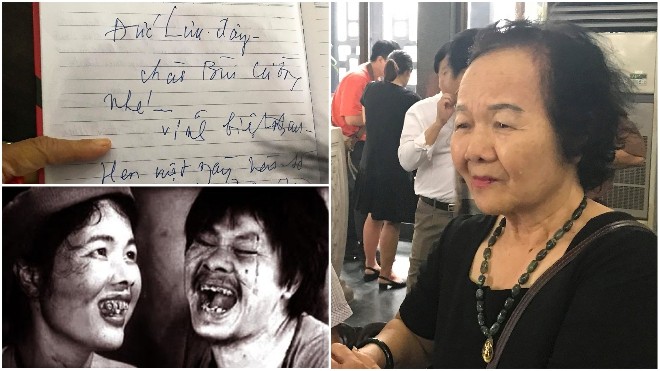 Đức Lưu đây-
chào Bùi Cường
nhé!-
vĩnh biệt
Hẹn một ngày